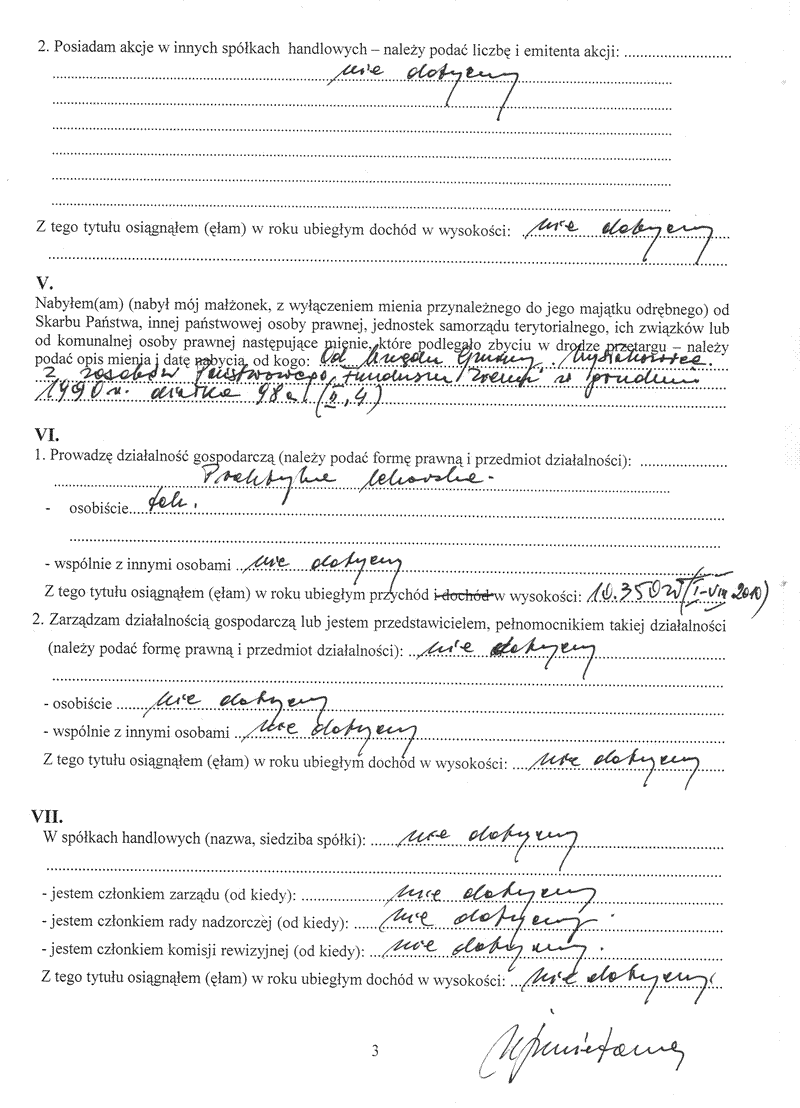 2. Posiadam akcje w innych spółkach handlowych – należy podać liczbę i emitenta akcji:
nie dotyczy
Z tego tytułu osiągnąłem (ęłam) w roku ubiegłym dochód w wysokości: nie dotyczy
V.
Nabyłem(am) (nabył mój małżonek, z wyłączeniem mienia przynależnego do jego majątku odrębnego) od
Skarbu Państwa, innej państwowej osoby prawnej, jednostek samorządu terytorialnego, ich związków lub
od komunalnej osoby prawnej następujące mienie, które podlegało zbyciu w drodze przetargu – należy
podać opis mienia i datę nabycia, od kogo: Od Urzędu Gminy Mysłakowice.
z zasobów Państwowego Funduszu Ziemi w grudniu
1990 r. działka 98a
VI.
1. Prowadzę działalność gospodarczą (należy podać formę prawną i przedmiot działalności):
Praktyka lekarska -
- osobiście tak.
- wspólnie z innymi osobami nie dotyczy
Z tego tytułu osiągnąłem (ęłam) w roku ubiegłym przychód i dochód w wysokości: 10.350 zł (I-VIII 2010)
2. Zarządzam działalnością gospodarczą lub jestem przedstawicielem, pełnomocnikiem takiej działalności
(należy podać formę prawną i przedmiot działalności): nie dotyczy
- osobiście nie dotyczy
- wspólnie z innymi osobami nie dotyczy
Z tego tytułu osiągnąłem (ęłam) w roku ubiegłym dochód w wysokości: nie dotyczy
VII.
W spółkach handlowych (nazwa, siedziba spółki): nie dotyczy
- jestem członkiem zarządu (od kiedy): nie dotyczy
- jestem członkiem rady nadzorczej (od kiedy): nie dotyczy
- jestem członkiem komisji rewizyjnej (od kiedy): nie dotyczy.
Z tego tytułu osiągnąłem (ęłam) w roku ubiegłym dochód w wysokości: nie dotyczy
3